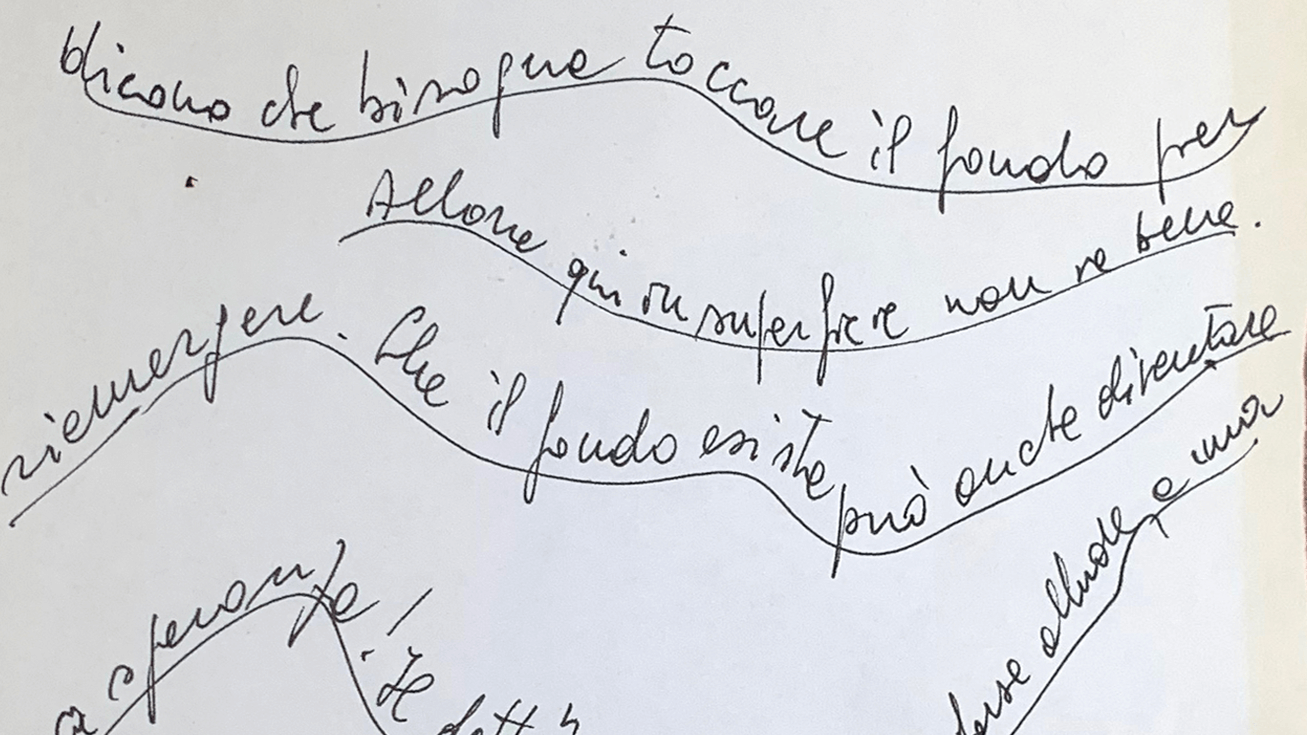 Dicono che bisogna toccare il fondo per
Allora qui in superficie non va bene.
riemergere. Che il fondo esista può anche diventare
forse allude a una
a speranza! Se